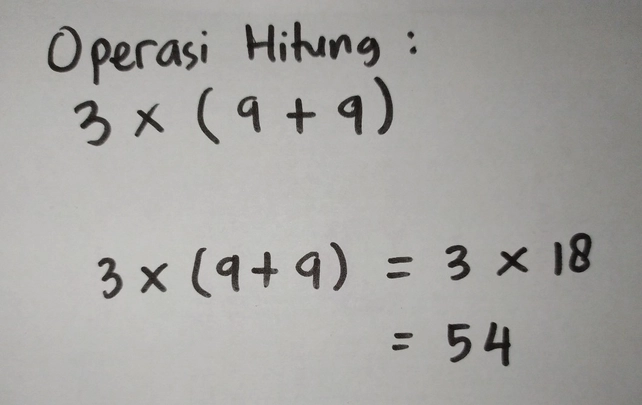 Operasi Hitung :
3 × (9 + 9)
3 × (9 + 9) = 3 × 18
= 54